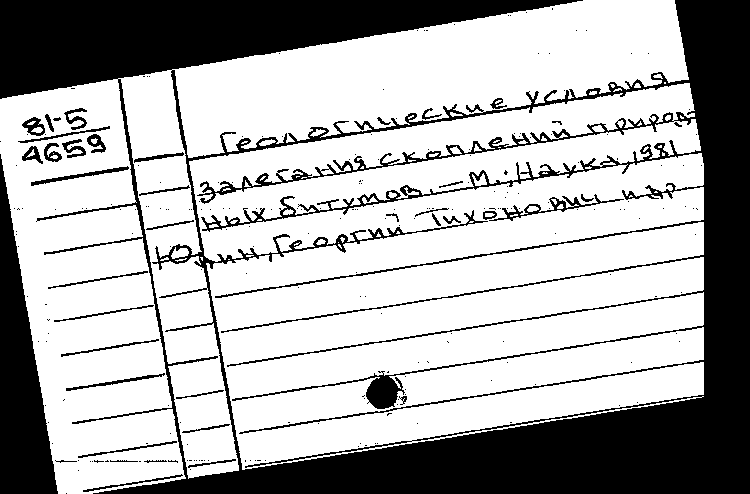 81-5
4659
Геологические условия
залегания скоплений природ-
ных битумов. — М.: Наука, 1981
Юдин, Георгий Тихонович и др